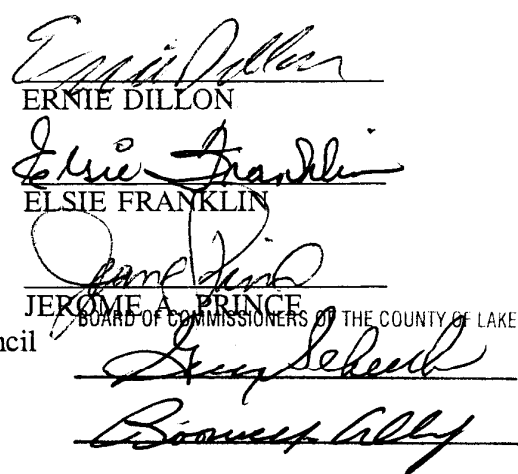 Ernie Dillon
ERNIE DILLON
Elsie Franklin
ELSIE FRANKLIN
Jerome Prince
JEROME A. PRINCE
BOARD OF COMMISSIONERS OF THE COUNTY OF LAKE
ncil